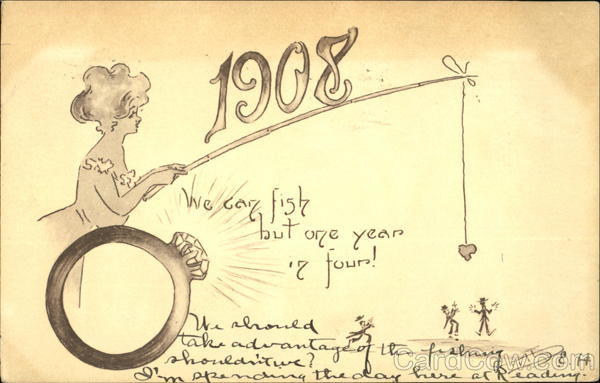 1908
We can fish
but one year
in four!
We should
take advantage of the fishing
shouldn't we?
I'm spending the day here at Reading.
CardCow.com